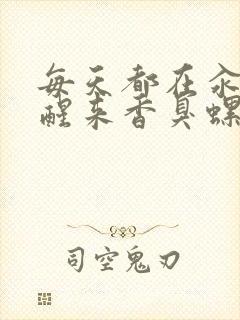 每天都在汆
醒来香臭螺
司空鬼刃